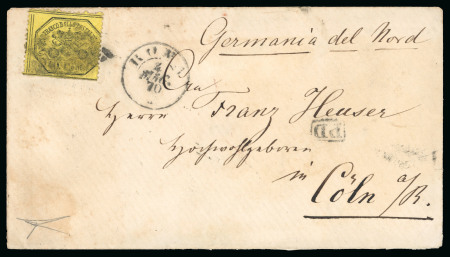 Germania del Nord
ROMA
70
Herrn Franz Heuser
PD
Hochwohlgeboren
in
Cöln a/R.